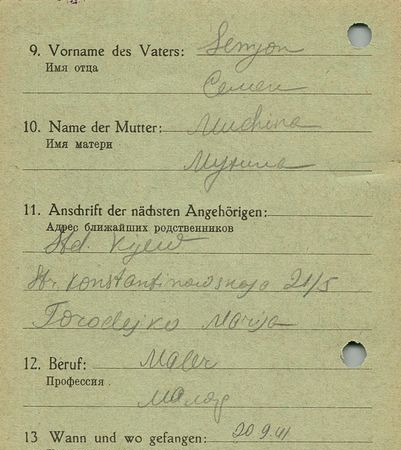 9. Vorname des Vaters: Semjon
Имя отца
Семен
10. Name der Mutter: Muchina
Имя матери
Мухина
11. Anschrift der nächsten Angehörigen:
Адрес ближайших родственников
Std. Kyew
Str. Konstantinowskaja 21/5
Gorodejko Marija
12. Beruf: Maler
Профессия
13 Wann und wo gefangen: 20.9.41